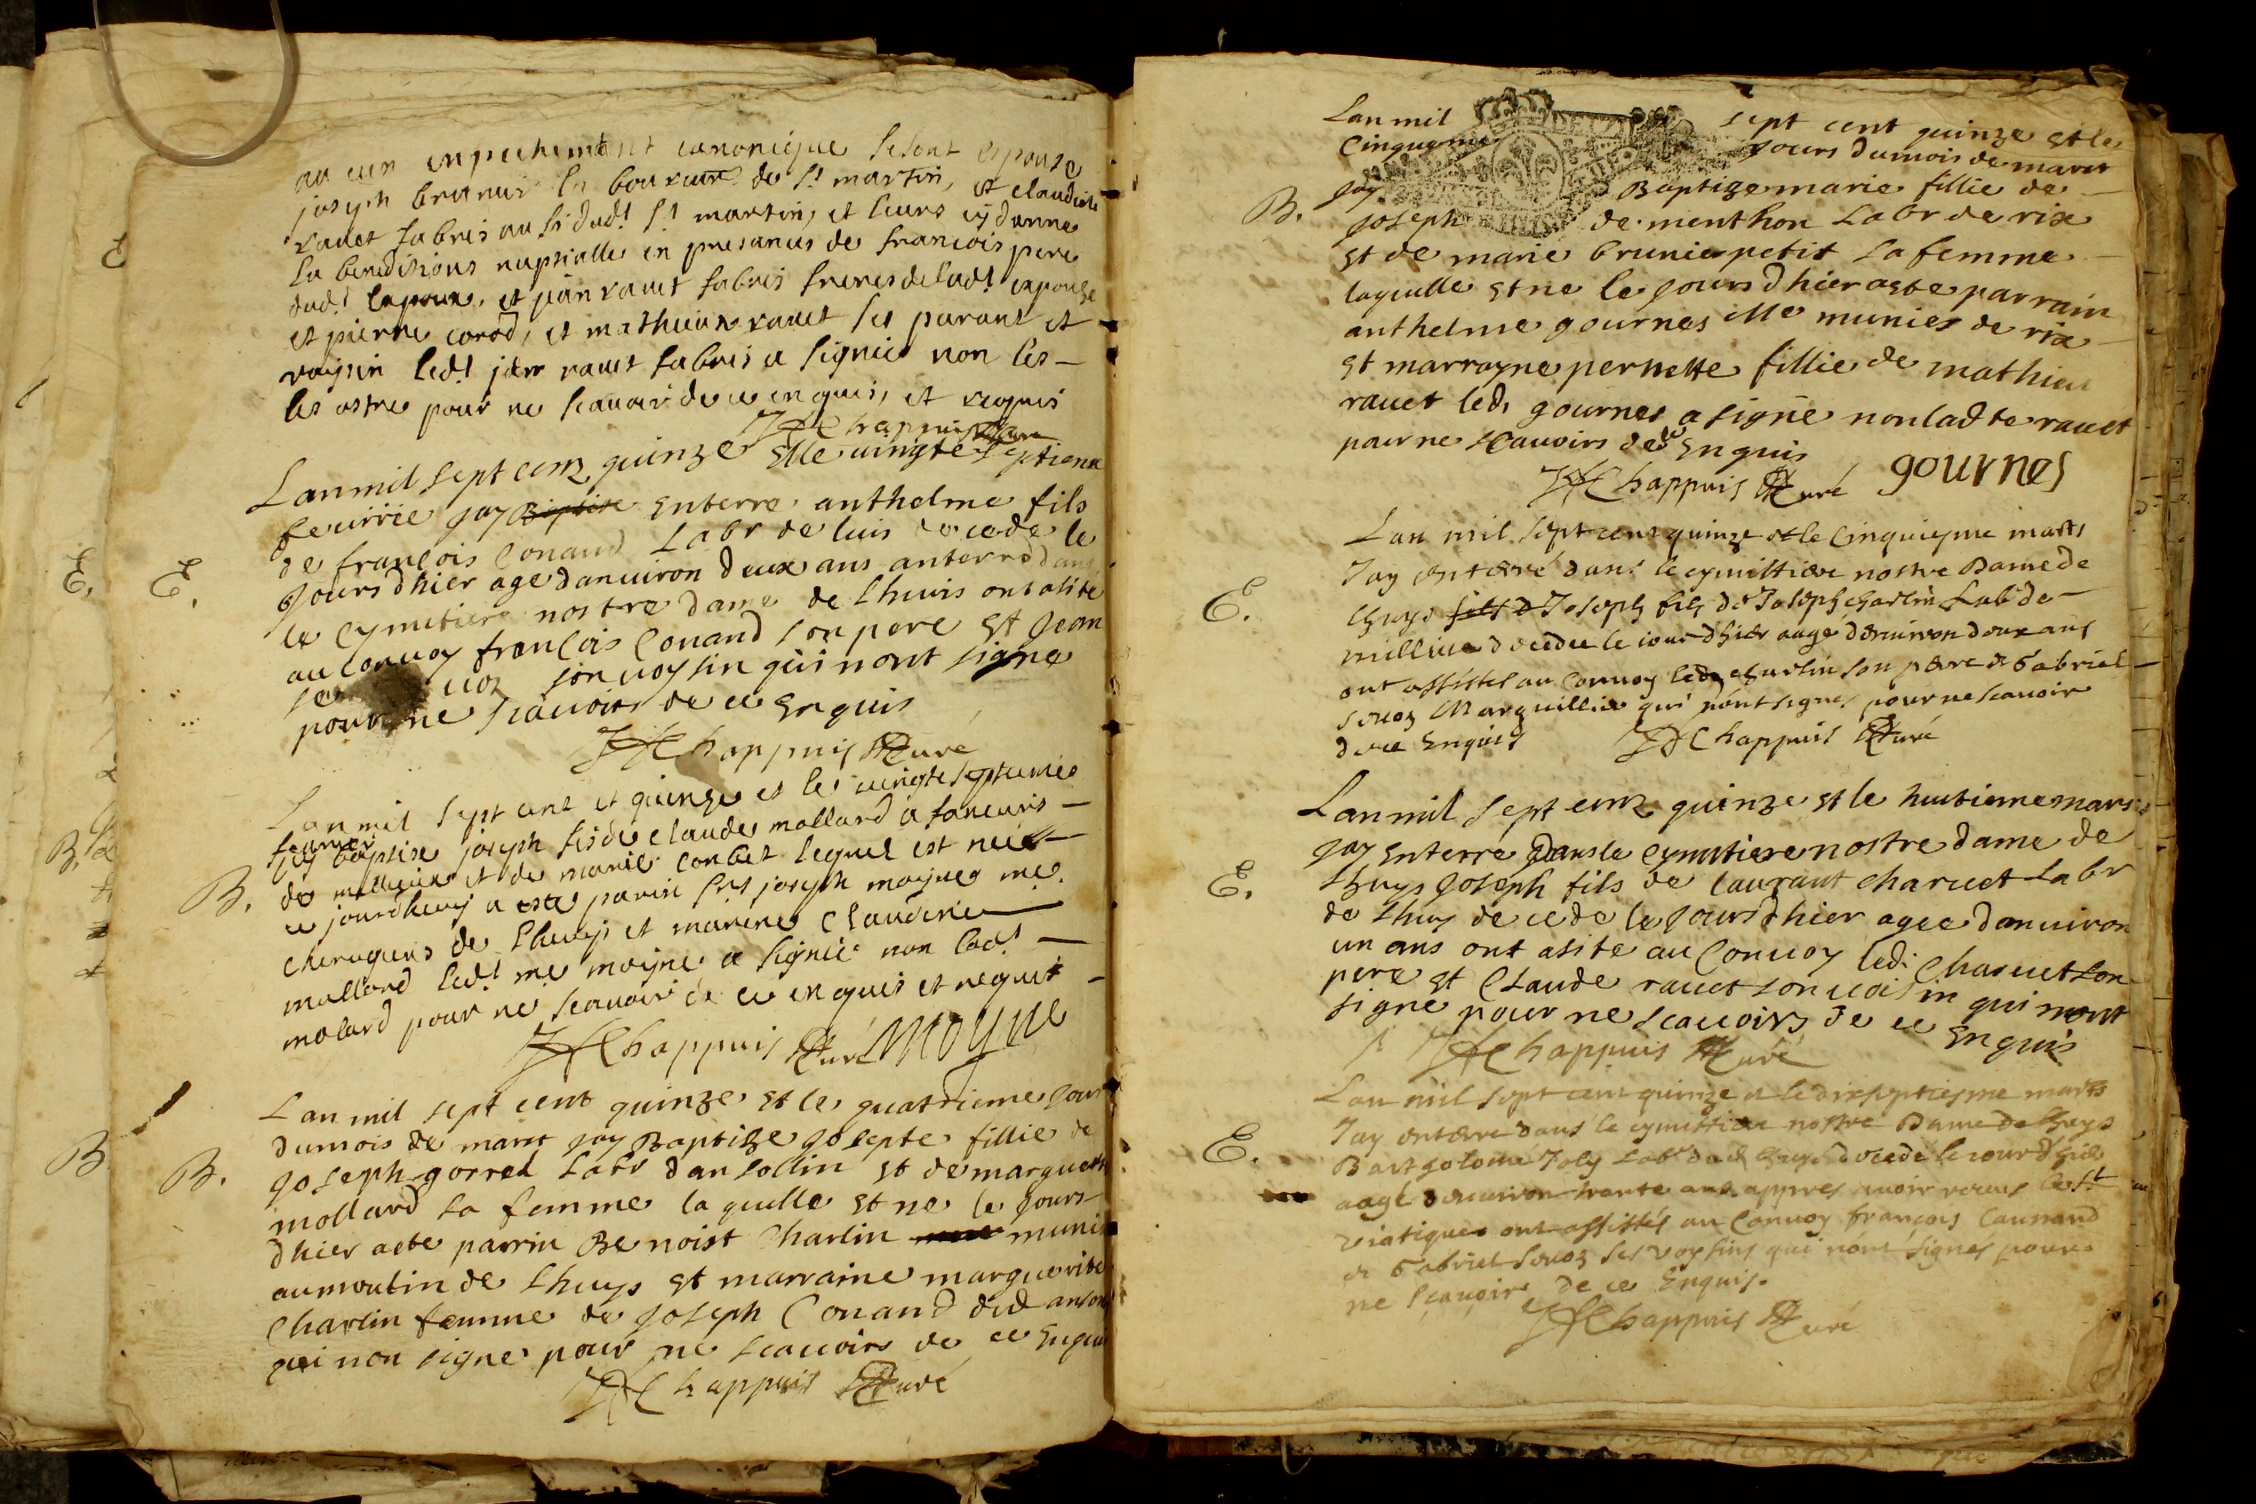 au cun enpechement canonique se sont espouse
joseph brunier de St martin, et claudine
rauet fabris au si dudt St martin, et leurs ey donne
la benedisions nupsialle en presances de francois pere
dudt lepoux, et jean rauet fabris freres de ladt espouse
et pierre corod, et mathieux rauet ses parant et
voysin ledt jean rauet fabris a signiee non les
les ostre pour ne scauoir de ce enquis, et requis
JF Chappuis Curé
Lan mil sept cens quinze et le uingte septieme
feurrié jay Baptise Enterre anthelme fils
de françois Conand Labr de luis decede le
Jours dhier age danuiron deux ans anterré dans
le Cymetiere nostre dame de Lhuis ont asite
au Conuoy françois Conand son pere Et Jean
son uoysin qui nont signe
pour ne scauoirs de ce Enquis
JF Chappuis Curé
Lan mil sept cent et quinze et le uingte septieme
feurier
jay baptise joseph fis de claude mollard a
de millieux et de marie conbet lequel est neé
ce jourdhuy a este parin Srs joseph moyne me
cheruguens de Lhuys et marene Claudine
mollard ledt me moyne a signié non ladt
molard pour ne scauoir de ce enquis et requis
JF Chappuis Curé Moyne
Lan mil sept cent quinze Et le quatrieme jour
du mois de mars jay Baptize josepte fillie de
Joseph gorrel Labr dansollin Et de marguerite
mollard sa femme laquelle Et ne le Jours
dhier aeste parrin Benoist Charlin munie
au moulin de Lhuys Et marraine marguerite
Charlin femme de Joseph Conand did ansolin
qui non signe pour ne scauoirs de ce Enquis
JF Chappuis Curé
Lan mil sept cent quinze Et le
Cinquieme jours du mois de mars
Jay Baptize marie fillie de
Joseph de menthon Labr de rix
Et de marie brunier petit sa femme
laquelle Et ne le Jours dhier aeste parrain
anthelme gournes munies de rix
Et marrayne pernette fillie de mathieu
rauet led. gournes a signe non ladte rauet
pour ne scauoirs de ce Enquis
JF Chappuis Curé gournes
Lan mil sept cens quinze et le Cinquiesme mars
Jay enterré dans le cymittiere nostre Dame de
Lhuys fils d Joseph fils de Joseph charlin Labr de
millieu decedee le iour dhier aagé denuiron deux ans
ont assistes au Conuoy led charlin son pere et Gabriel
Suoz Marguillier qui nont signes pour ne scauoir
de ce Enquis JF Chappuis Curé
Lan mil sept cens quinze Et le huitieme mars
Jay Enterré Dans le Cymitiere nostre dame de
Lhuys Joseph fils de laurant charuet Labr
de Lhuys decede le Jours dhier agee danuiron
un ans ont asite au Conuoy led. Charuet son
pere Et Claude rauet son uoisin qui nont
signe pour ne scauoirs de ce Enquis
JF Chappuis Curé
Lan mil sept cens quinze et le dixseptiesme mars
Jay enterre dans le cymittiere nostre Dame de Lhuys
Bartholome Joly Labr dud Lhuys decede le iour dhier
aagé denuiron trante ans appres auoir receus le St
viatiques ont assistés au Conuoy françois Caunand
et Gabriel Suoz ses voysins qui nont signes pour
ne scauoir de ce Enquis.
JF Chappuis Curé
E.
E.
B.
B.
B.
E.
E.
E.